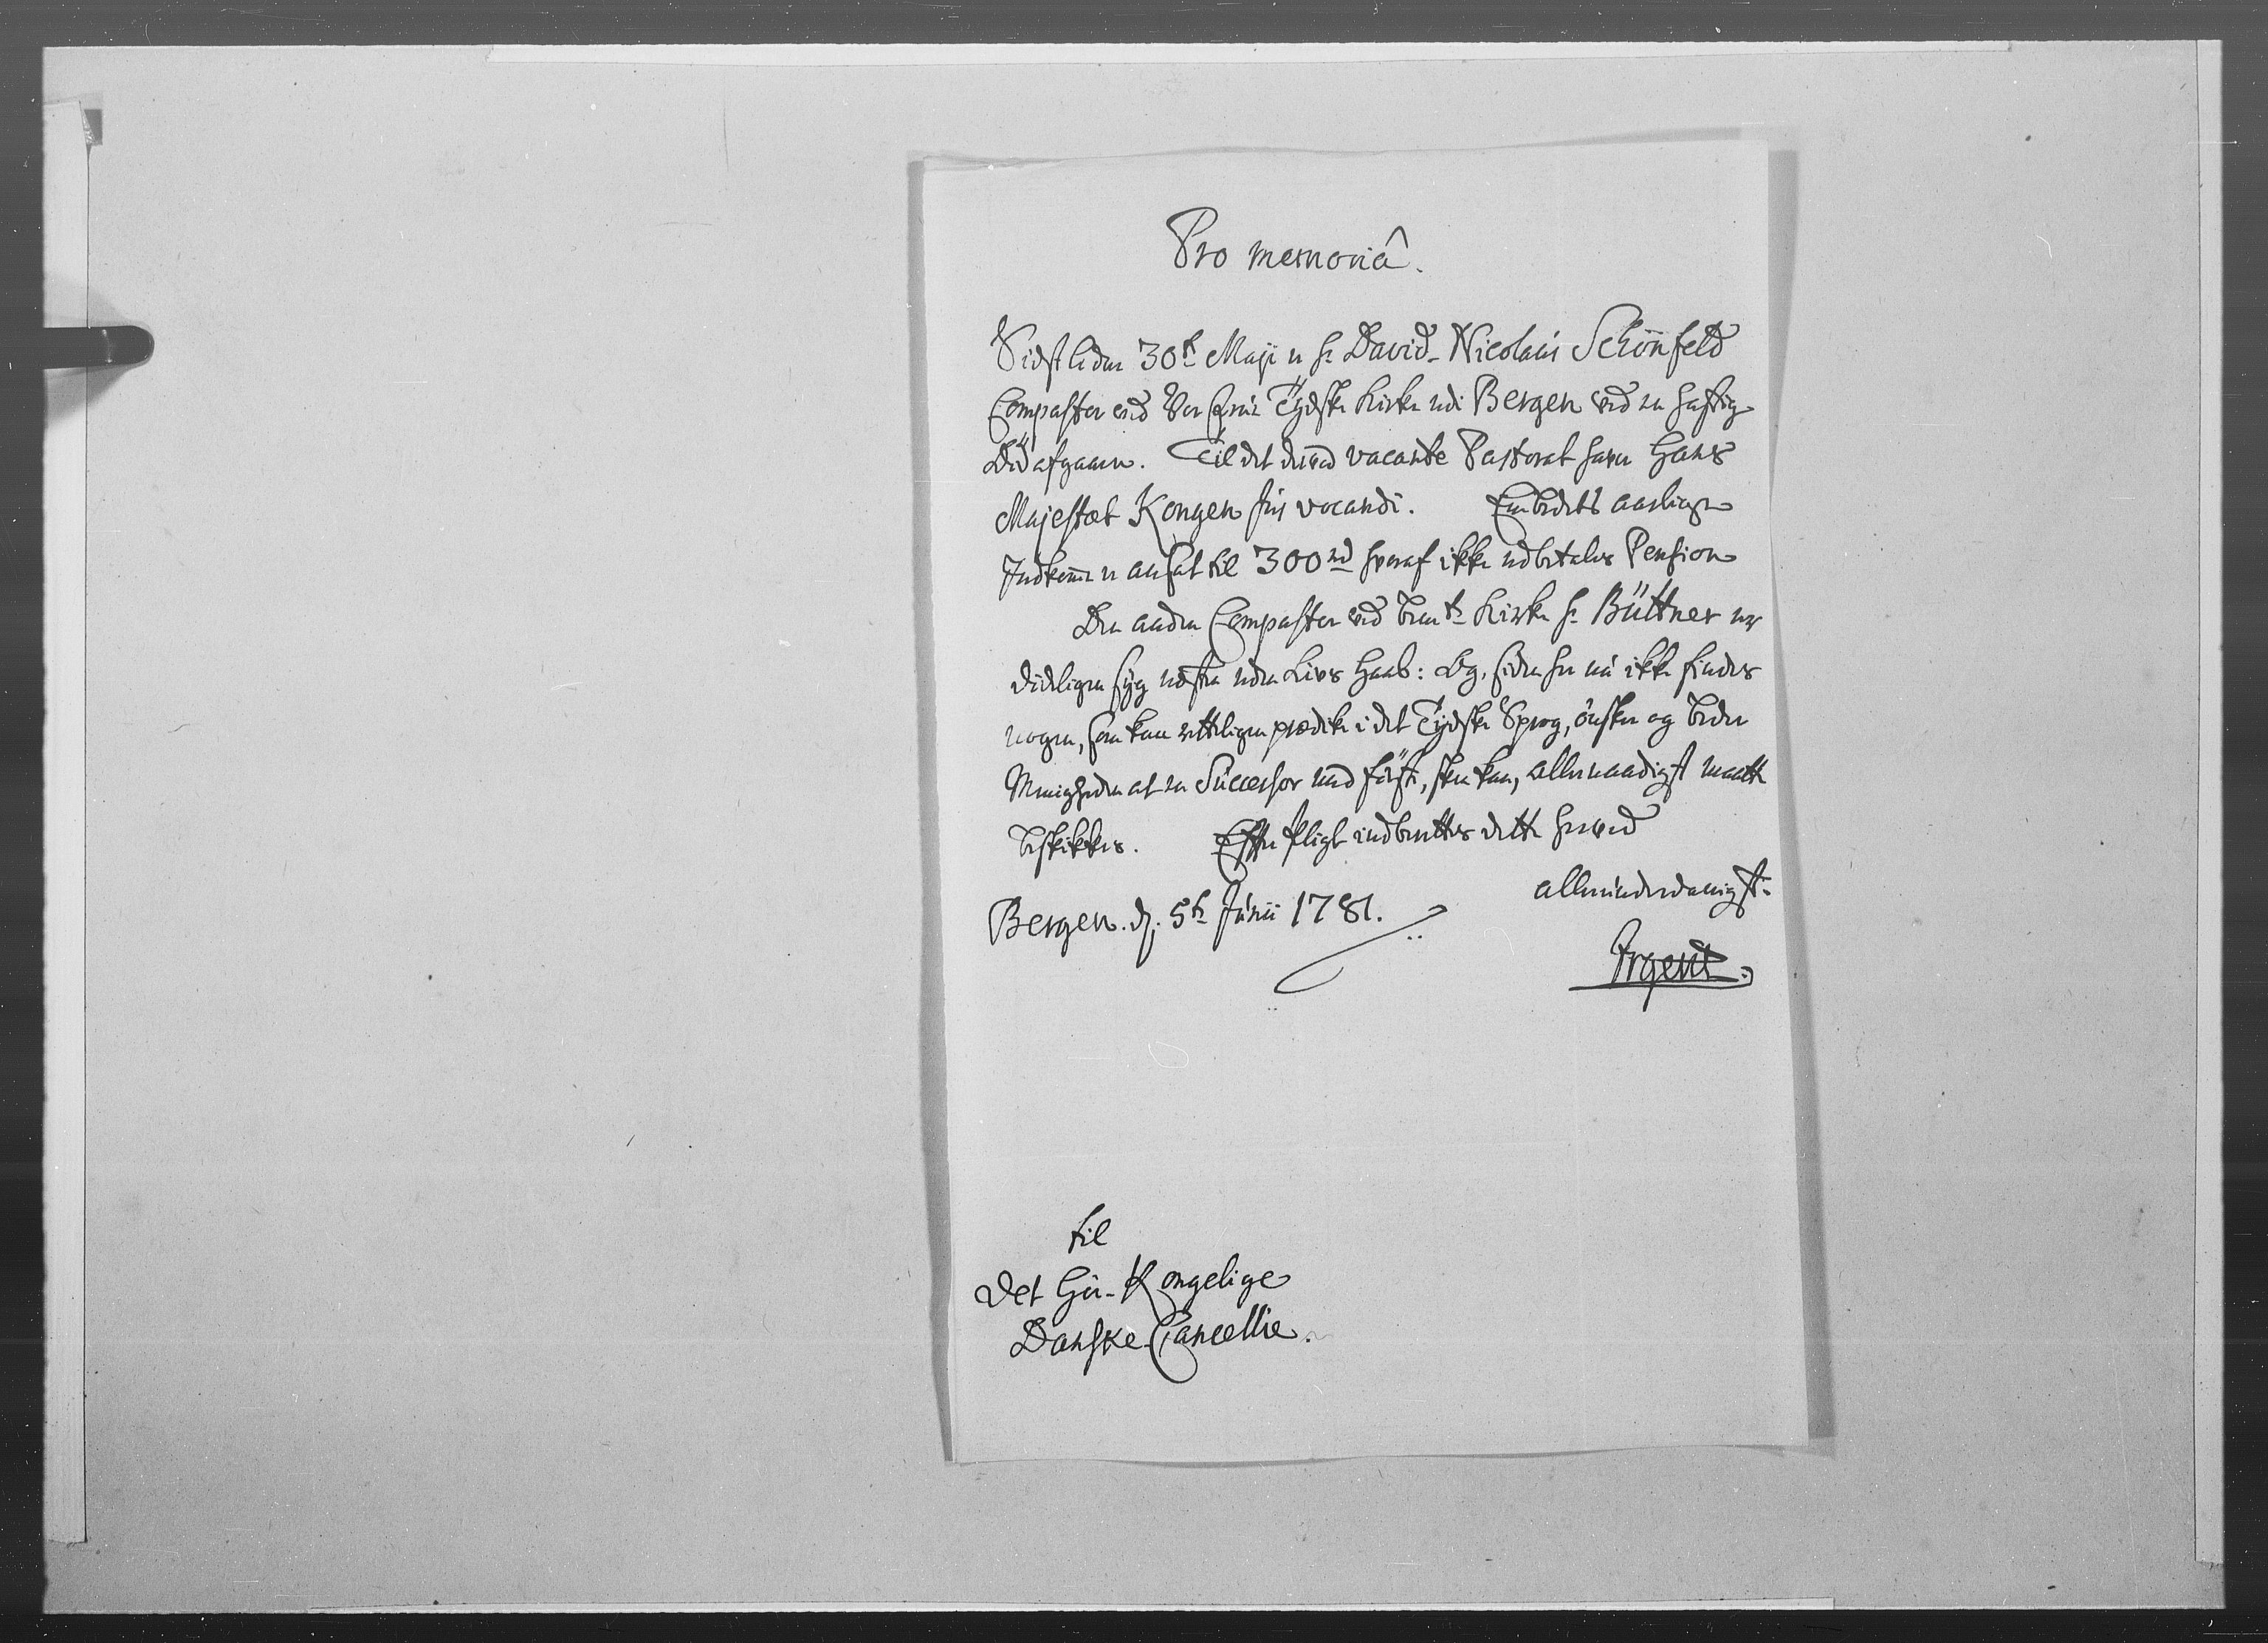 Pro memoriâ.
Sidstleden 30te Maji er hr David Nicolaus Schönnfeld
Compastor ved Vor Frue Tydske Kirke udi Bergen ved en hastig
Död afgaaen. Til det derved vacante Pastorat haver Hans
Majestæt Kongen jus vocandi. Embedets aarlige
Indkomme er ansat til 300 rd hvoraf ikke udbetales Pension
Den anden Compastor ved bemte Kirke hr Büttner er
dödeligen syg næsten uden Livs Haab: Og, siden her nu ikke findes
nogen, som kan retteligen prædike i det Tydske Sprog, önsker og beder
Menigheden at en Successor med förste, skee kan, allernaadigst maatte
beskikkes. Efter Pligt indberettes dette herved
allerunderdanigst.
Bergen. d. 5te Junii 1781.
Irgens
til
Det Höi-Kongelige
Danske Cancellie.